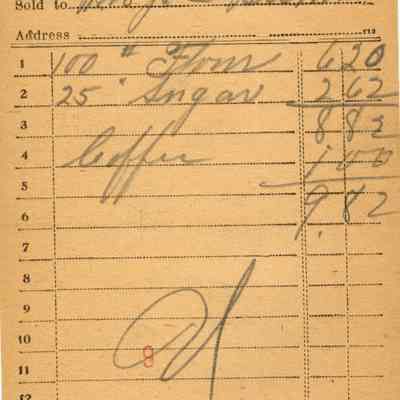 Sold to
Address
1 100 " Flour 6 20
2 25 " Sugar 2 62
3 8 82
4 Coffee 1 00
5
6 9 82
7
8
9
10 9
11
12